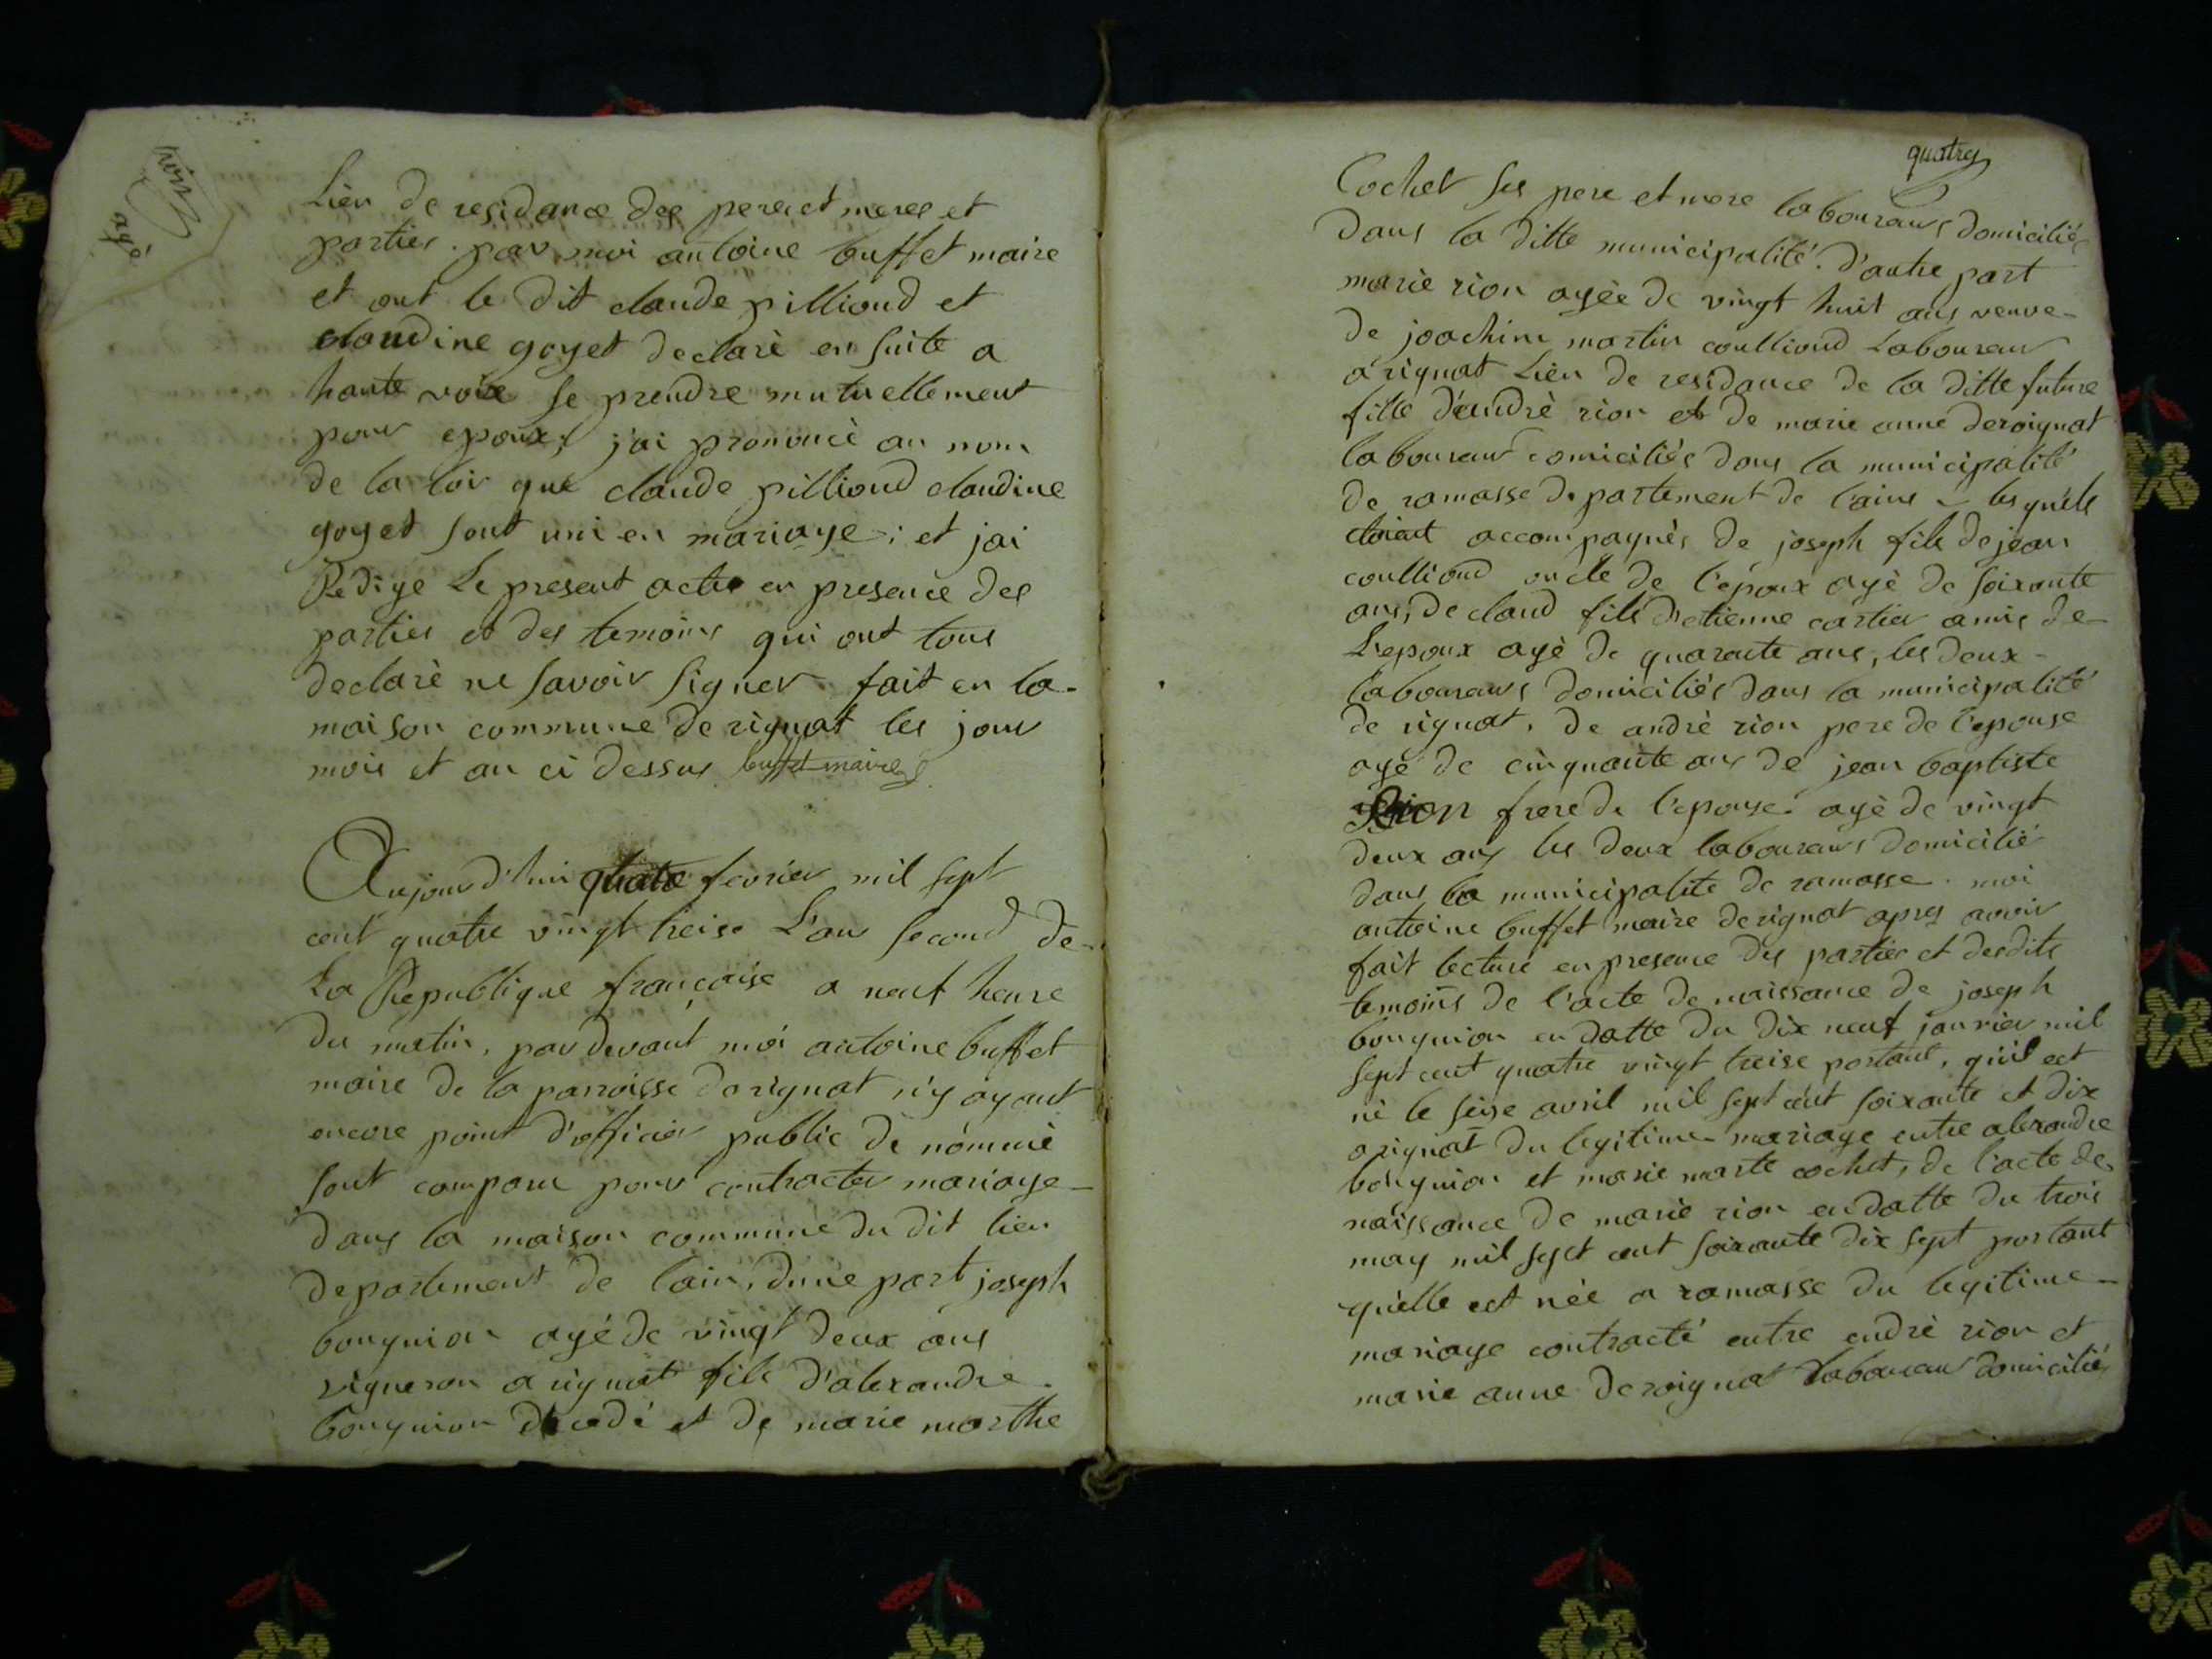 trois
agé
Lieu de residance des peres et meres et
parties. par moi antoine buffet maire
et ont le dit claude pillioud et
claudine goyet declarè en suite a
haute voix se prendre mutuellement
pour epoux, j'ai prononcè au nom
de la loi que claude pillioud claudine
goyet sont uni en mariage; et jai
Rédigé Le present acte en presence des
parties et des temoins qui ont tous
declarè ne savoir signer fait en la
maison commune de rignat les jour
mois et an ci dessus buffet maire
Aujourd'hui quatre fevrier mil sept
cent quatre vingt treise L'an second de
La Republique française a neuf heure
du matin, par devant moi antoine buffet
maire de la parroisse de rignat n'y ayant
encore point d'officier public de nommè
sont comparu pour contracter mariage
dans la maison commune du dit lieu
departement de lain, d'une part joseph
bouguion agé de vingt deux ans
vigneron a rignat fils d'alexandre
bouguion décedé et de marie marthe
quatre
Cochet ses pere et mere laboureurs domiciliés
dans la ditte municipalité. d'autre part
marie rion agèe de vingt huit ans veuve
de joachim martin coullioud Laboureur
a rignat Lieu de residance de la ditte future
fille d'andrè rion et de marie anne deroignat
laboureur domiciliés dans la municipalité
de ramasse departement de l'aint lesquels
etoient accompagnès de joseph fils de jean
coullioud oncle de l'epoux agè de soixante
ans, de claud fils d'etienne cartier amis de
L'epoux agè de quarante ans, les deux
laboureurs domiciliés dans la municipalité
de rignat, de andrè rion pere de l'epouse
agé de cinquante ans de jean baptiste
Rion frere de l'epouse agè de vingt
deux ans les deux laboureurs domicilié
dans la municipalite de ramasse. moi
antoine buffet maire de rignat apres avoir
fait lecture en presence des parties et desdits
temoins de l'acte de naissance de joseph
bouguion en datte du dix neuf janvier mil
sept cent quatre vingt treise portant, qu'il est
nè le seise avril mil sept cent soixante et dix
a rignat du legitime mariage entre alexandre
bouguion et marie marte cochet, de l'acte de
naissance de marie rion en datte du trois
may mil sept cent soixante dix sept portant
qu'elle est nèe a ramasse du legitime
mariage contracté entre andrè rion et
marie anne deroignat laboureur domicilié